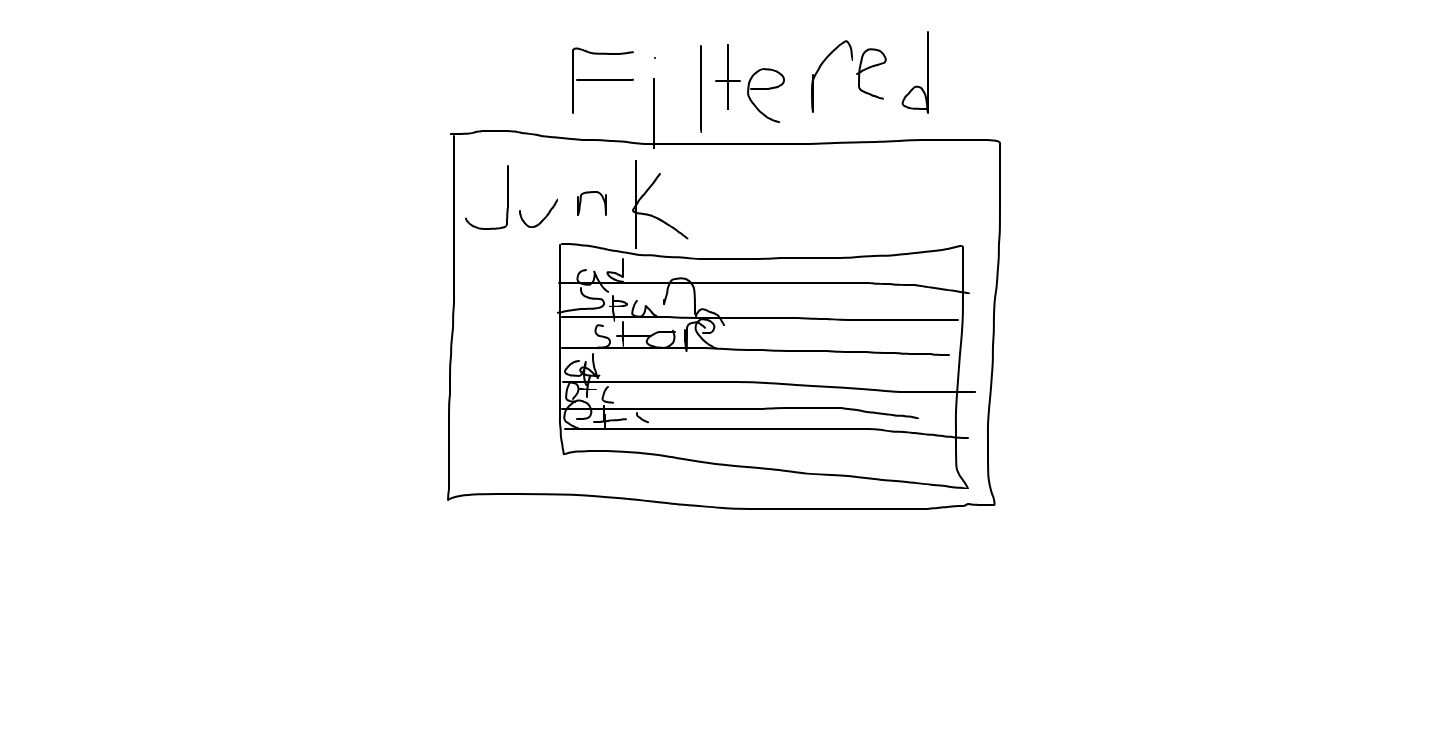 Filtered
Junk
ad
Spam
store
ad
etc
etc